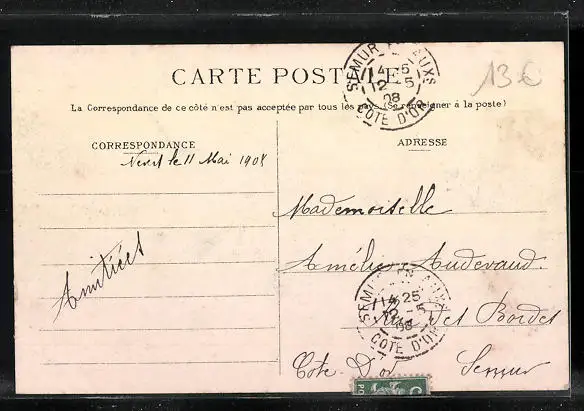 CARTE POSTALE
SEMUR EN AUXS
14-5
12-5
08
COTE D'OR
13 €
La Correspondance de ce côté n'est pas acceptée par tous les pays (Se renseigner à la poste)
CORRESPONDANCE
le 11 Mai 1908
ADRESSE
Mademoiselle
Amélie Audevaud.
Amitiées
SEMUR EN AUXS
14 25
12-5
08
COTE D'OR
Rue des Bordes
Côte d'or Semur